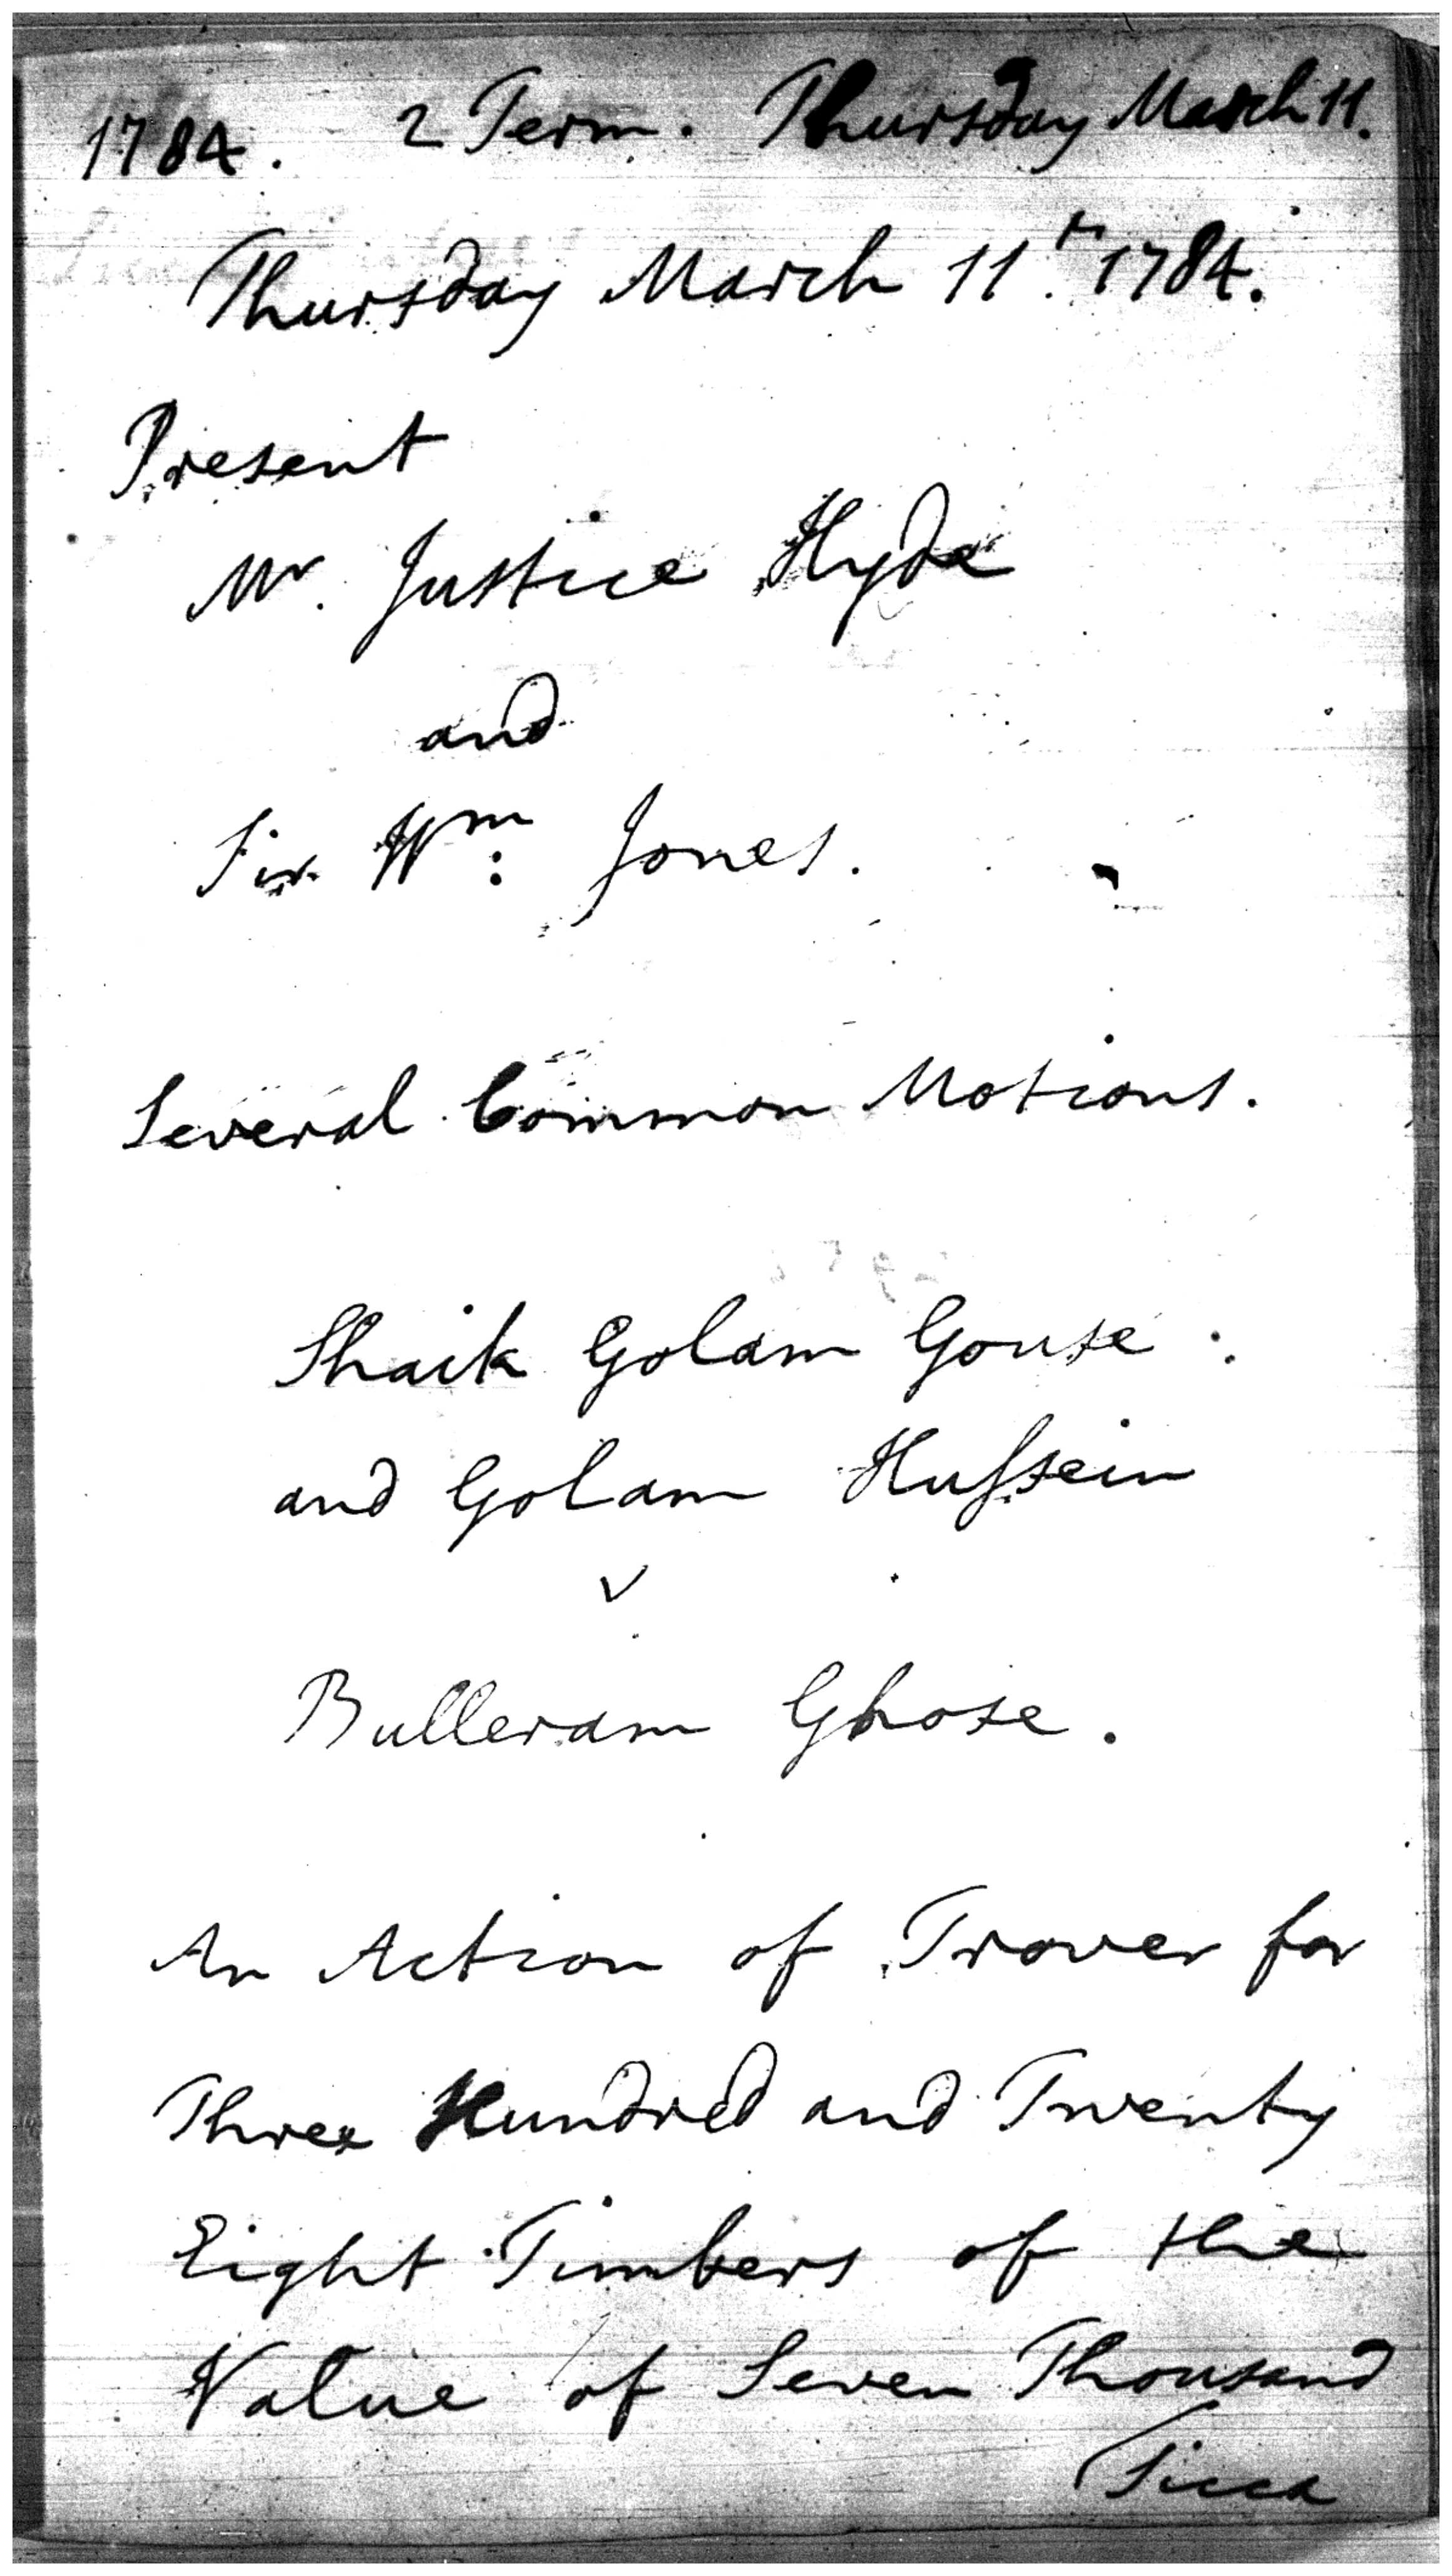 1784. 2 Term. Thursday March 11.
Thursday March 11th. 1784.
Present
Mr. Justice Hyde
and
Sir Wm: Jones.
Several Common Motions.
Shaik Golam Gouse.
and Golam Hufsein
v
Bulleram Ghose.
An Action of Trover for
Three Hundred and Twenty
Eight Timbers of the
Value of Seven Thousand
Sicca